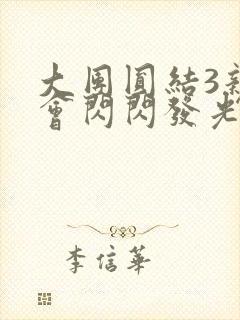 大團圓結3新
會閃閃發光
李信華